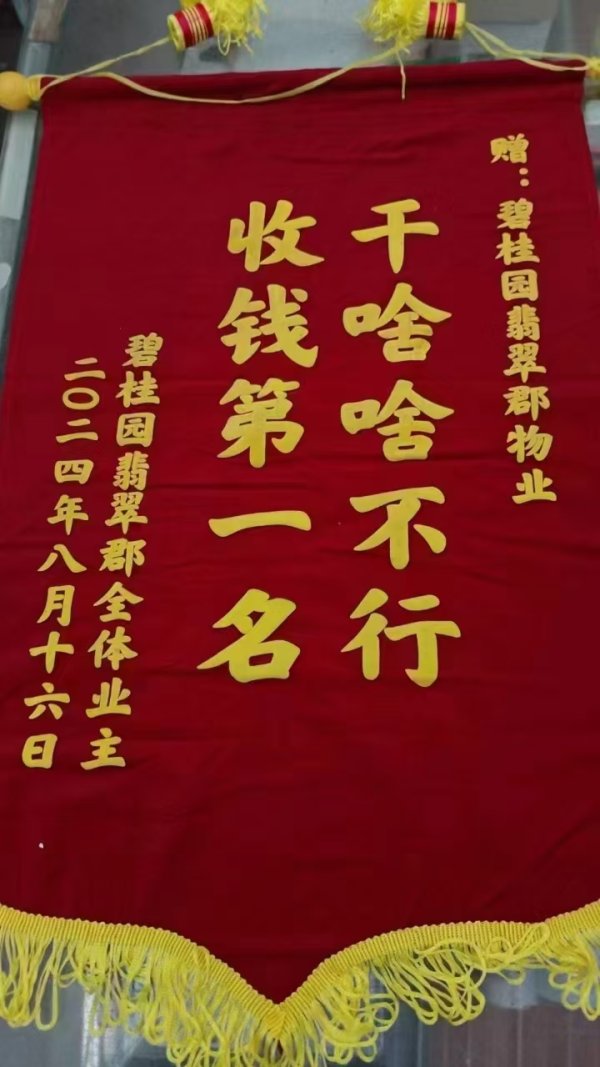 赠：碧桂园翡翠郡物业
干啥啥不行
收钱第一名
碧桂园翡翠郡全体业主
二〇二四年八月十六日